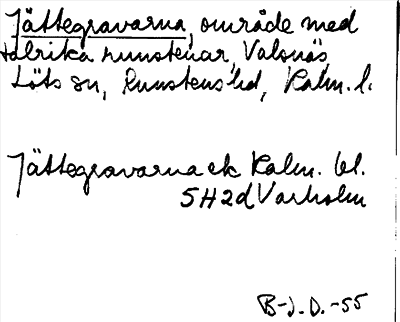 Jättegravarna, område med
talrika runstenar, Valsnäs,
Löts sn, Runstens hd, Kalm. l.
Jättegravarna ek Kalm. bl.
5H2d Varholm
B-J. D. -55